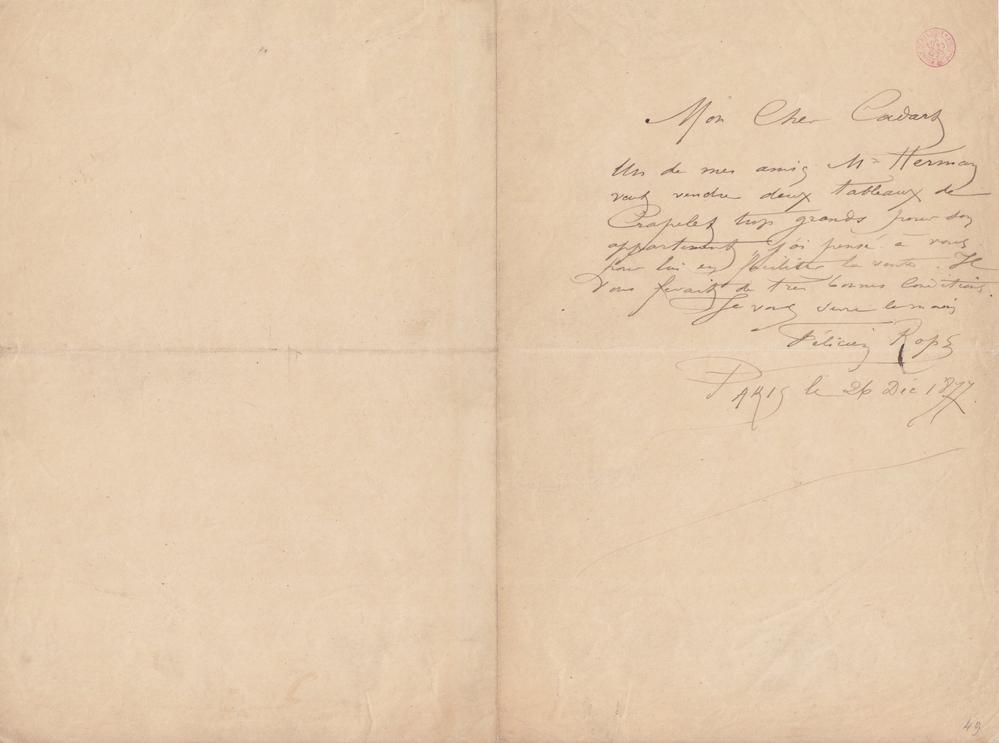 Mon Cher Cadart
Un de mes amis Mr Herman
veut vendre deux tableaux de
Crapelet trop grands pour son
appartement j'ai pensé à vous
pour lui en faciliter la vente. Il
vous ferait de très bonnes conditions.
Je vous serre la main
Félicien Rops
PARIS le 26 Déc 1877
49